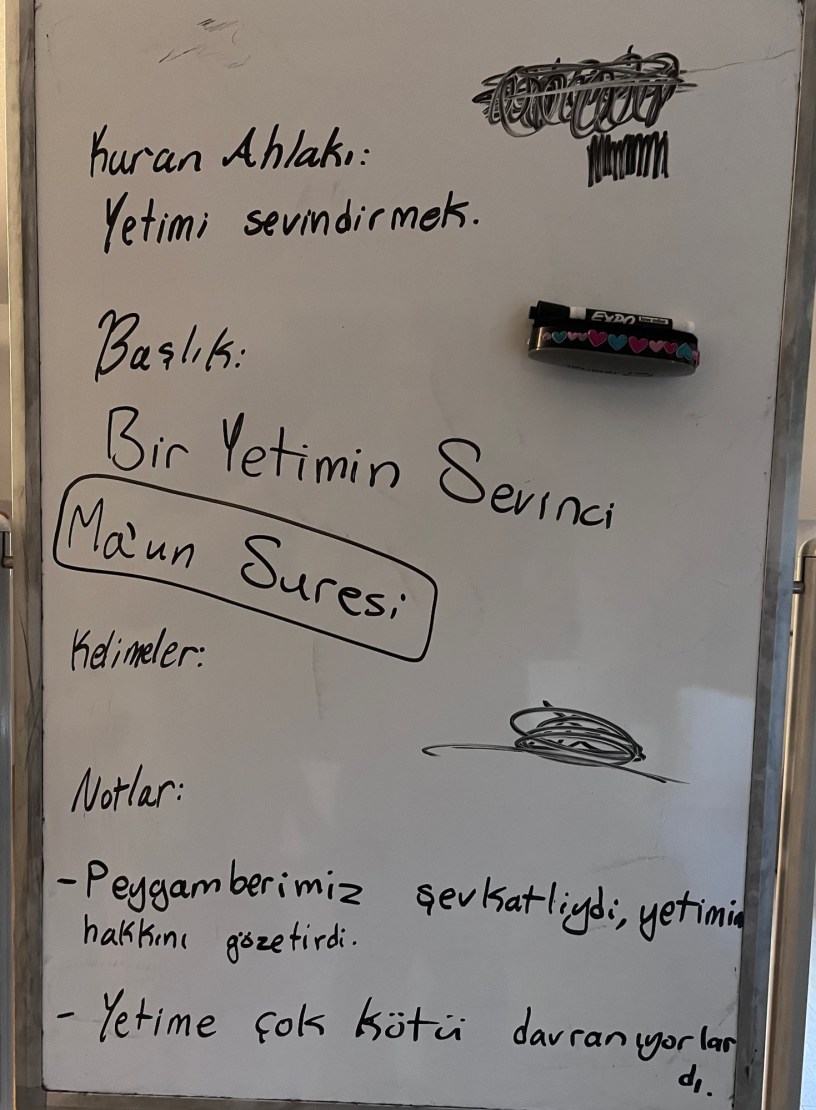 Kuran Ahlakı:
Yetimi sevindirmek.
EXPO
Başlık:
Bir Yetimin Sevinci
Ma'un Suresi
Kelimeler:
Notlar:
- Peygamberimiz şevkatliydi, yetimin
hakkını gözetirdi.
- Yetime çok kötü davranıyorlar
dı.